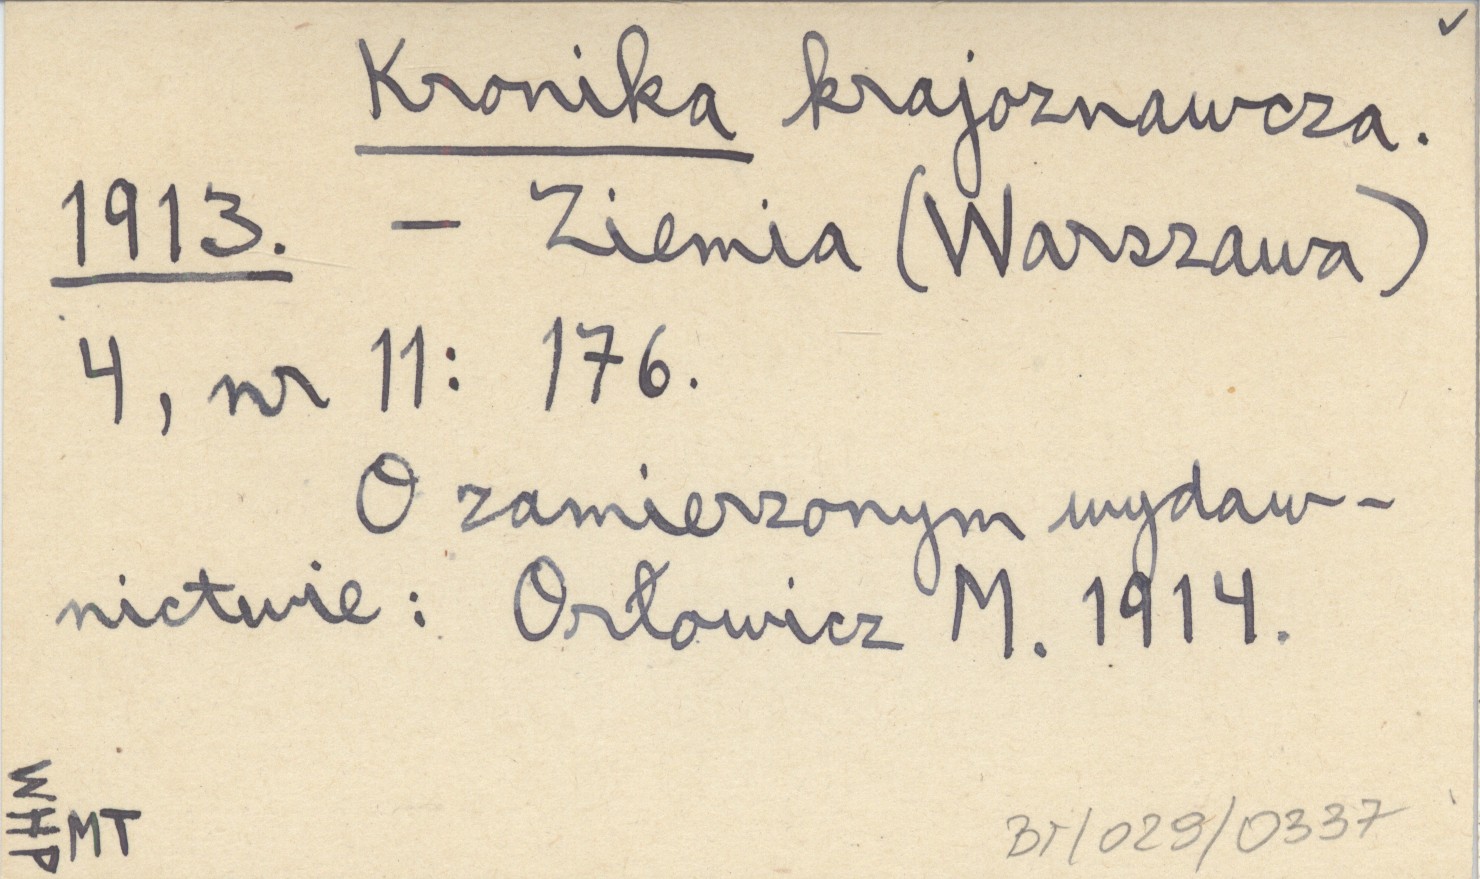 Kronika krajoznawcza.
1913. – Ziemia (Warszawa)
4, nr 11: 176.
O zamierzonym wydaw-
nictwie: Orłowicz M. 1914.
WHP
MT
BT/029/0337